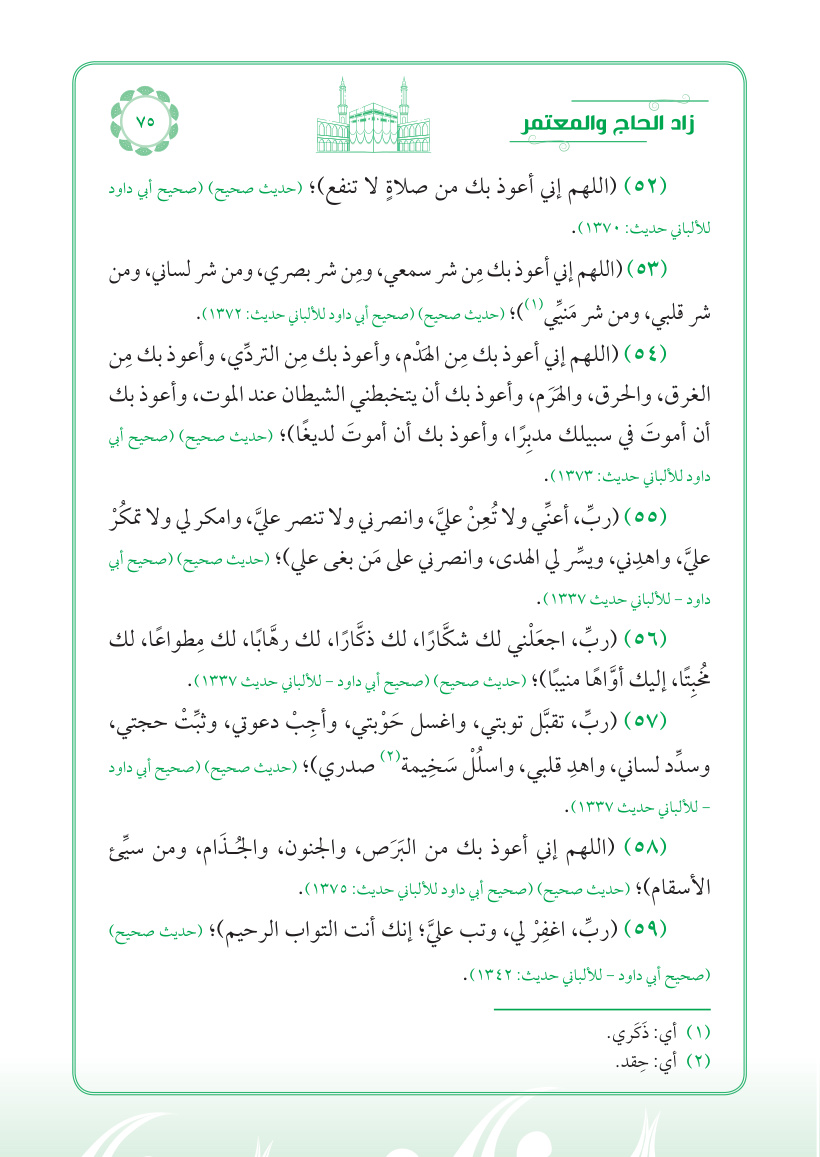 زاد الحاج والمعتمر
٧٥
(٥٢) (اللهم إني أعوذ بك من صلاةٍ لا تنفع)؛ (حديث صحيح) (صحيح أبي داود
للألباني حديث: ١٣٧٠).
(٥٣) (اللهم إني أعوذ بك مِن شر سمعي، ومِن شر بصري، ومن شر لساني، ومن
شر قلبي، ومن شر مَنيِّي(١))؛ (حديث صحيح) (صحيح أبي داود للألباني حديث: ١٣٧٢).
(٥٤) (اللهم إني أعوذ بك مِن الهَدْم، وأعوذ بك مِن التردِّي، وأعوذ بك مِن
الغرق، والحرق، والهَرَم، وأعوذ بك أن يتخبطني الشيطان عند الموت، وأعوذ بك
أن أموتَ في سبيلك مدبِرًا، وأعوذ بك أن أموتَ لديغًا)؛ (حديث صحيح) (صحيح أبي
داود للألباني حديث: ١٣٧٣).
(٥٥) (ربِّ، أعنِّي ولا تُعِنْ عليَّ، وانصرني ولا تنصر عليَّ، وامكر لي ولا تمكُرْ
عليَّ، واهدِني، ويسِّر لي الهدى، وانصرني على مَن بغى علي)؛ (حديث صحيح) (صحيح أبي
داود – للألباني حديث ١٣٣٧).
(٥٦) (ربِّ، اجعَلْني لك شكَّارًا، لك ذكَّارًا، لك رهَّابًا، لك مِطواعًا، لك
مُخبِتًا، إليك أوَّاهًا منيبًا)؛ (حديث صحيح) (صحيح أبي داود – للألباني حديث ١٣٣٧).
(٥٧) (ربِّ، تقبَّل توبتي، واغسل حَوْبتي، وأجِبْ دعوتي، وثبِّتْ حجتي،
وسدِّد لساني، واهدِ قلبي، واسلُلْ سَخِيمة(٢) صدري)؛ (حديث صحيح) (صحيح أبي داود
– للألباني حديث ١٣٣٧).
(٥٨) (اللهم إني أعوذ بك من البَرَص، والجنون، والجُـذَام، ومن سيِّئ
الأسقام)؛ (حديث صحيح) (صحيح أبي داود للألباني حديث: ١٣٧٥).
(٥٩) (ربِّ، اغفِرْ لي، وتب عليَّ؛ إنك أنت التواب الرحيم)؛ (حديث صحيح)
(صحيح أبي داود – للألباني حديث: ١٣٤٢).
(١) أي: ذَكَري.
(٢) أي: حِقد.